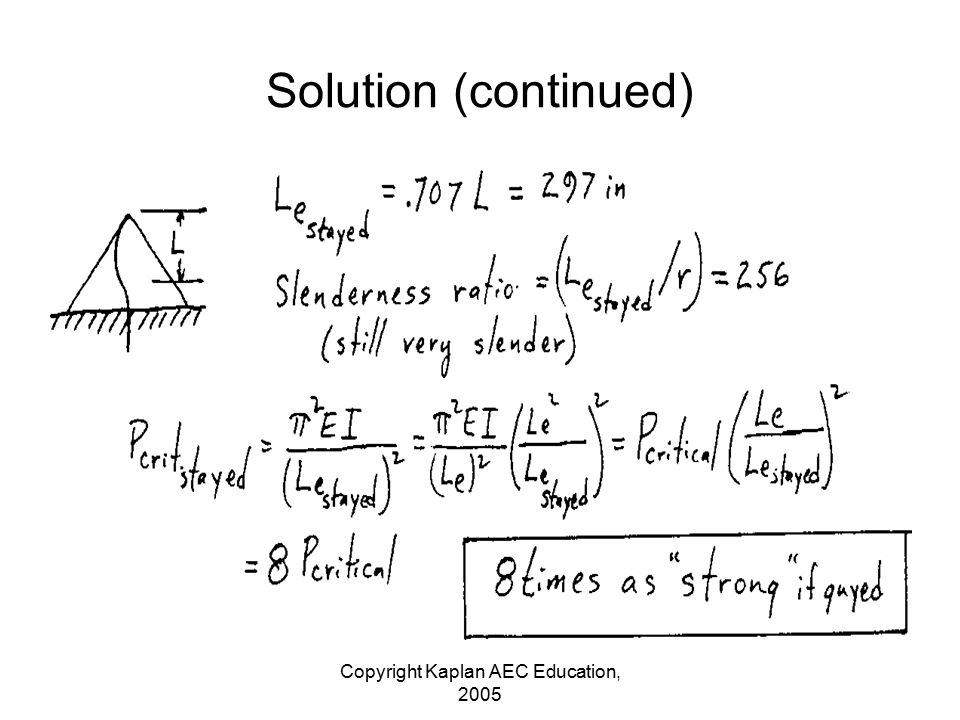 Solution (continued)
Le stayed = .707 L = 297 in
L
Slenderness ratio = (Le stayed / r) = 256
(still very slender)
Pcrit stayed = π²EI / (Le stayed)² = π²EI / (Le)² (Le² / Le stayed)² = Pcritical (Le / Le stayed)²
= 8 Pcritical
8 times as "strong" if guyed
Copyright Kaplan AEC Education,
2005